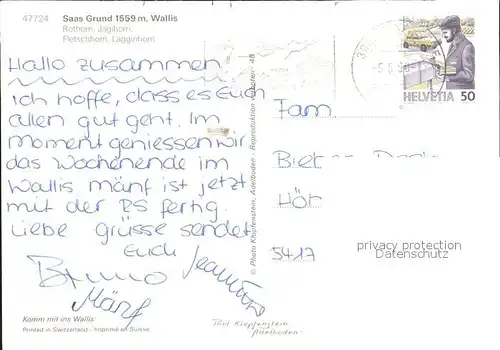 47724 Saas Grund 1559 m, Wallis
Rothorn, Jägihorn,
Fletschhorn, Lagginhorn
Hallo zusammen
Ich hoffe, dass es Euch
allen gut geht. Im
Moment geniessen wir
das Wochenende im
Wallis Mänf ist jetzt
mit der RS fertig.
Liebe Grüsse sendet
Euch
Bruno
Mänf
Komm mit ins Wallis
Printed in Switzerland - Imprimé en Suisse
© Photo Klopfenstein, Adelboden - Reproduktion verboten 48
HELVETIA 50
Fam
Hör
5417
privacy protection
Datenschutz
Phot Klopfenstein
Adelboden